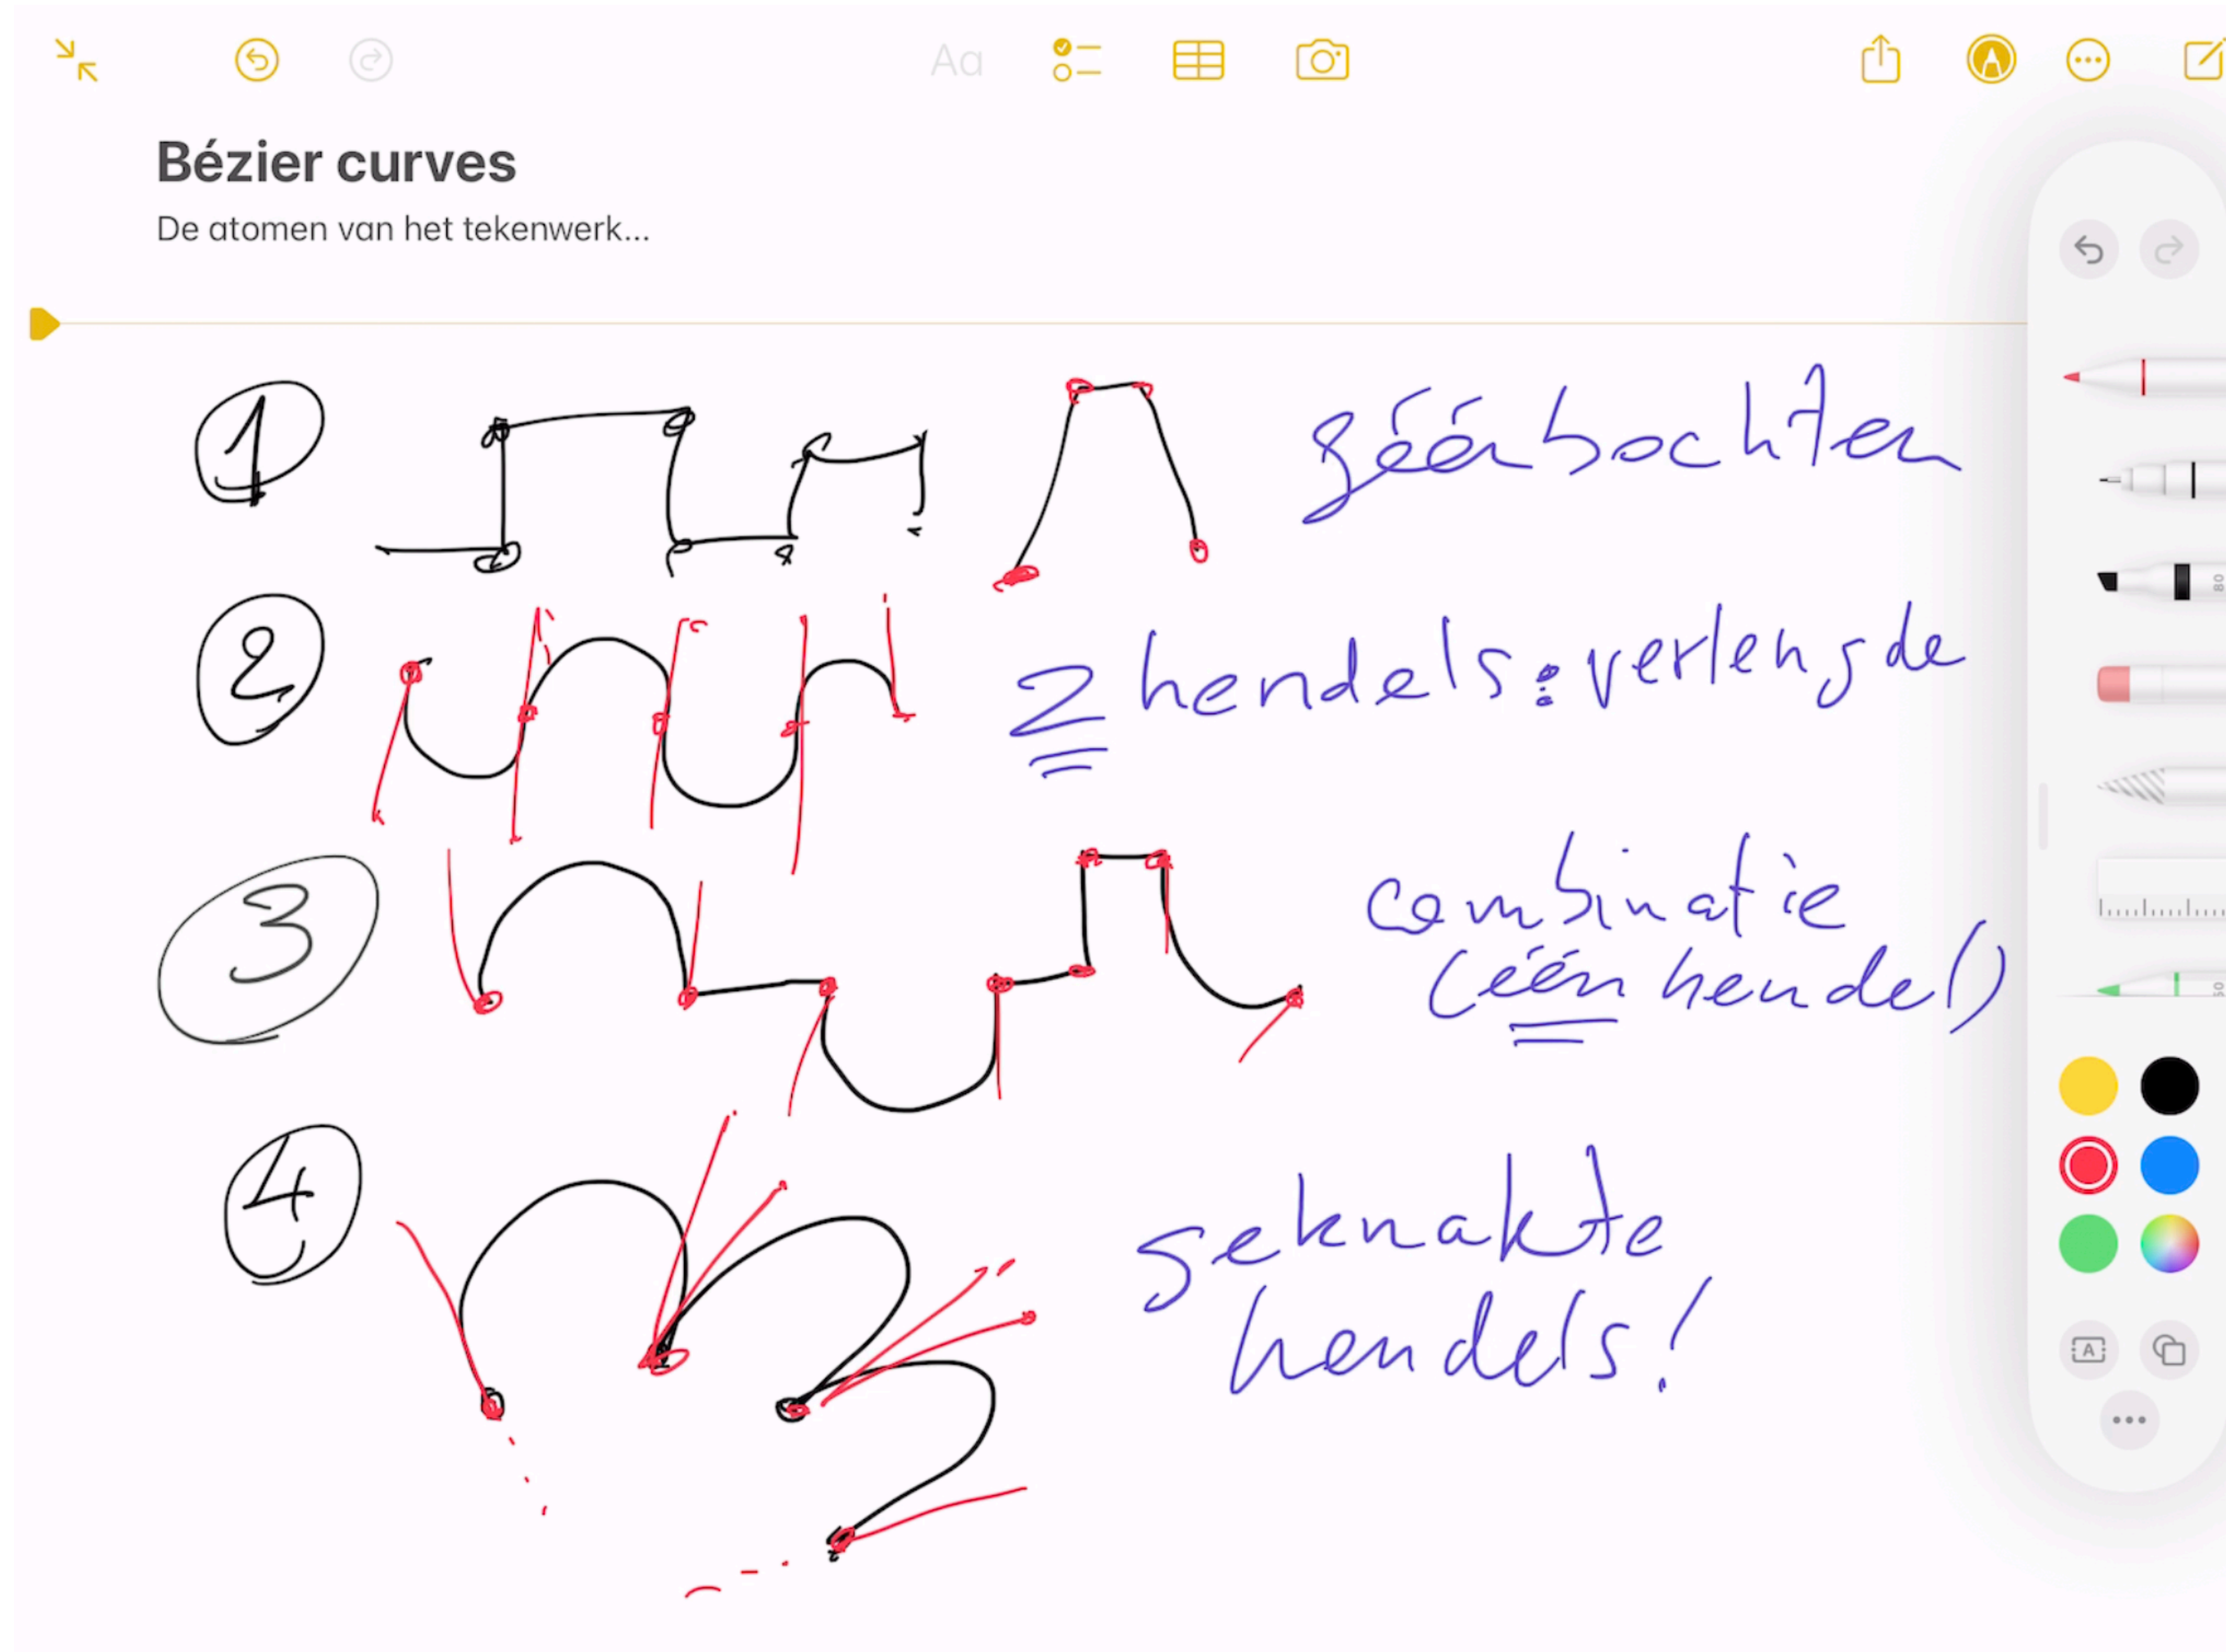 Aa
Bézier curves
De atomen van het tekenwerk...
1
géén bochten
2
2 hendels: verlengde
3
combinatie
(één hendel)
4
geknakte
hendels!
80
50
A